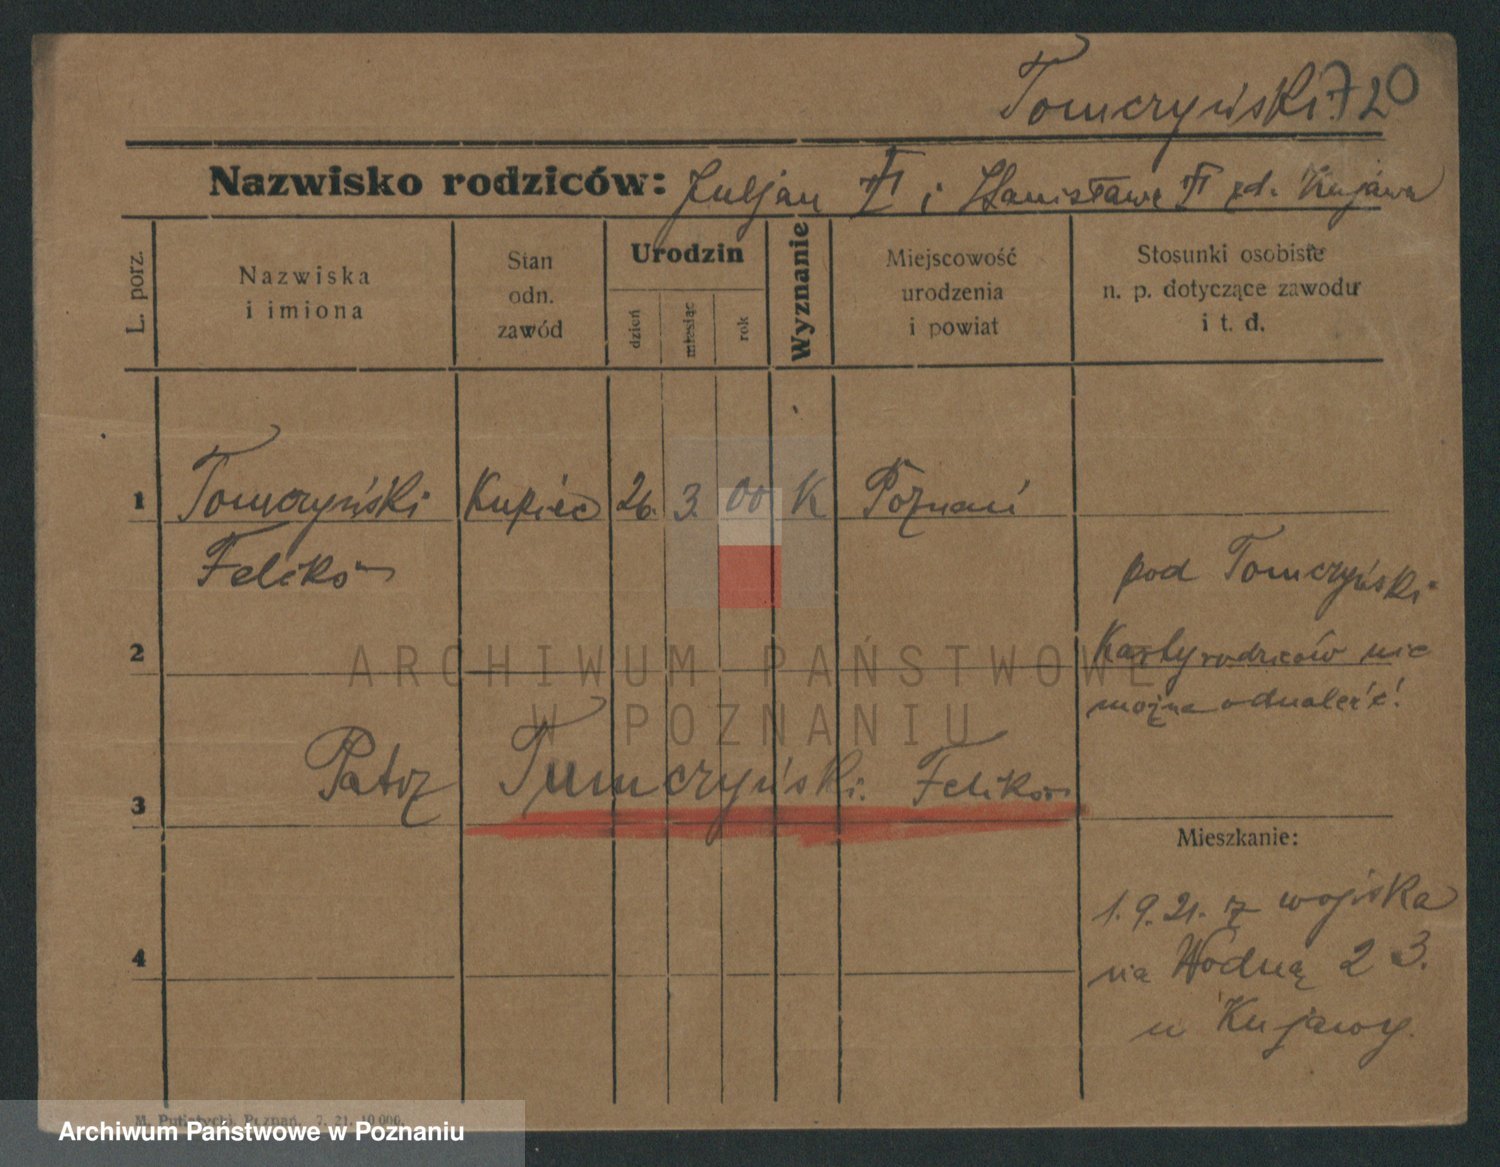 Tomczyński 720
Nazwisko rodziców: Juljan i Stanisława zd. Kujawa
L. porz.
Nazwiska i imiona
Stan odn. zawód
Urodzin
dzień
miesiąc
rok
Wyznanie
Miejscowość urodzenia i powiat
Stosunki osobiste n. p. dotyczące zawodu i t. d.
1 Tomczyński Kupiec 26. 3. 00 K Poznań
Feliks
pod Tomczyński
2
Karty rodziców nie
można odnaleźć!
3 Patrz Tumczyński Feliks
Mieszkanie:
1.9.21. z wojska
4
na Wodną 23.
u Kujawy.
M. Putiatycki, Poznań. 7. 21. 10.000.
ARCHIWUM PAŃSTWOWE
W POZNANIU
Archiwum Państwowe w Poznaniu